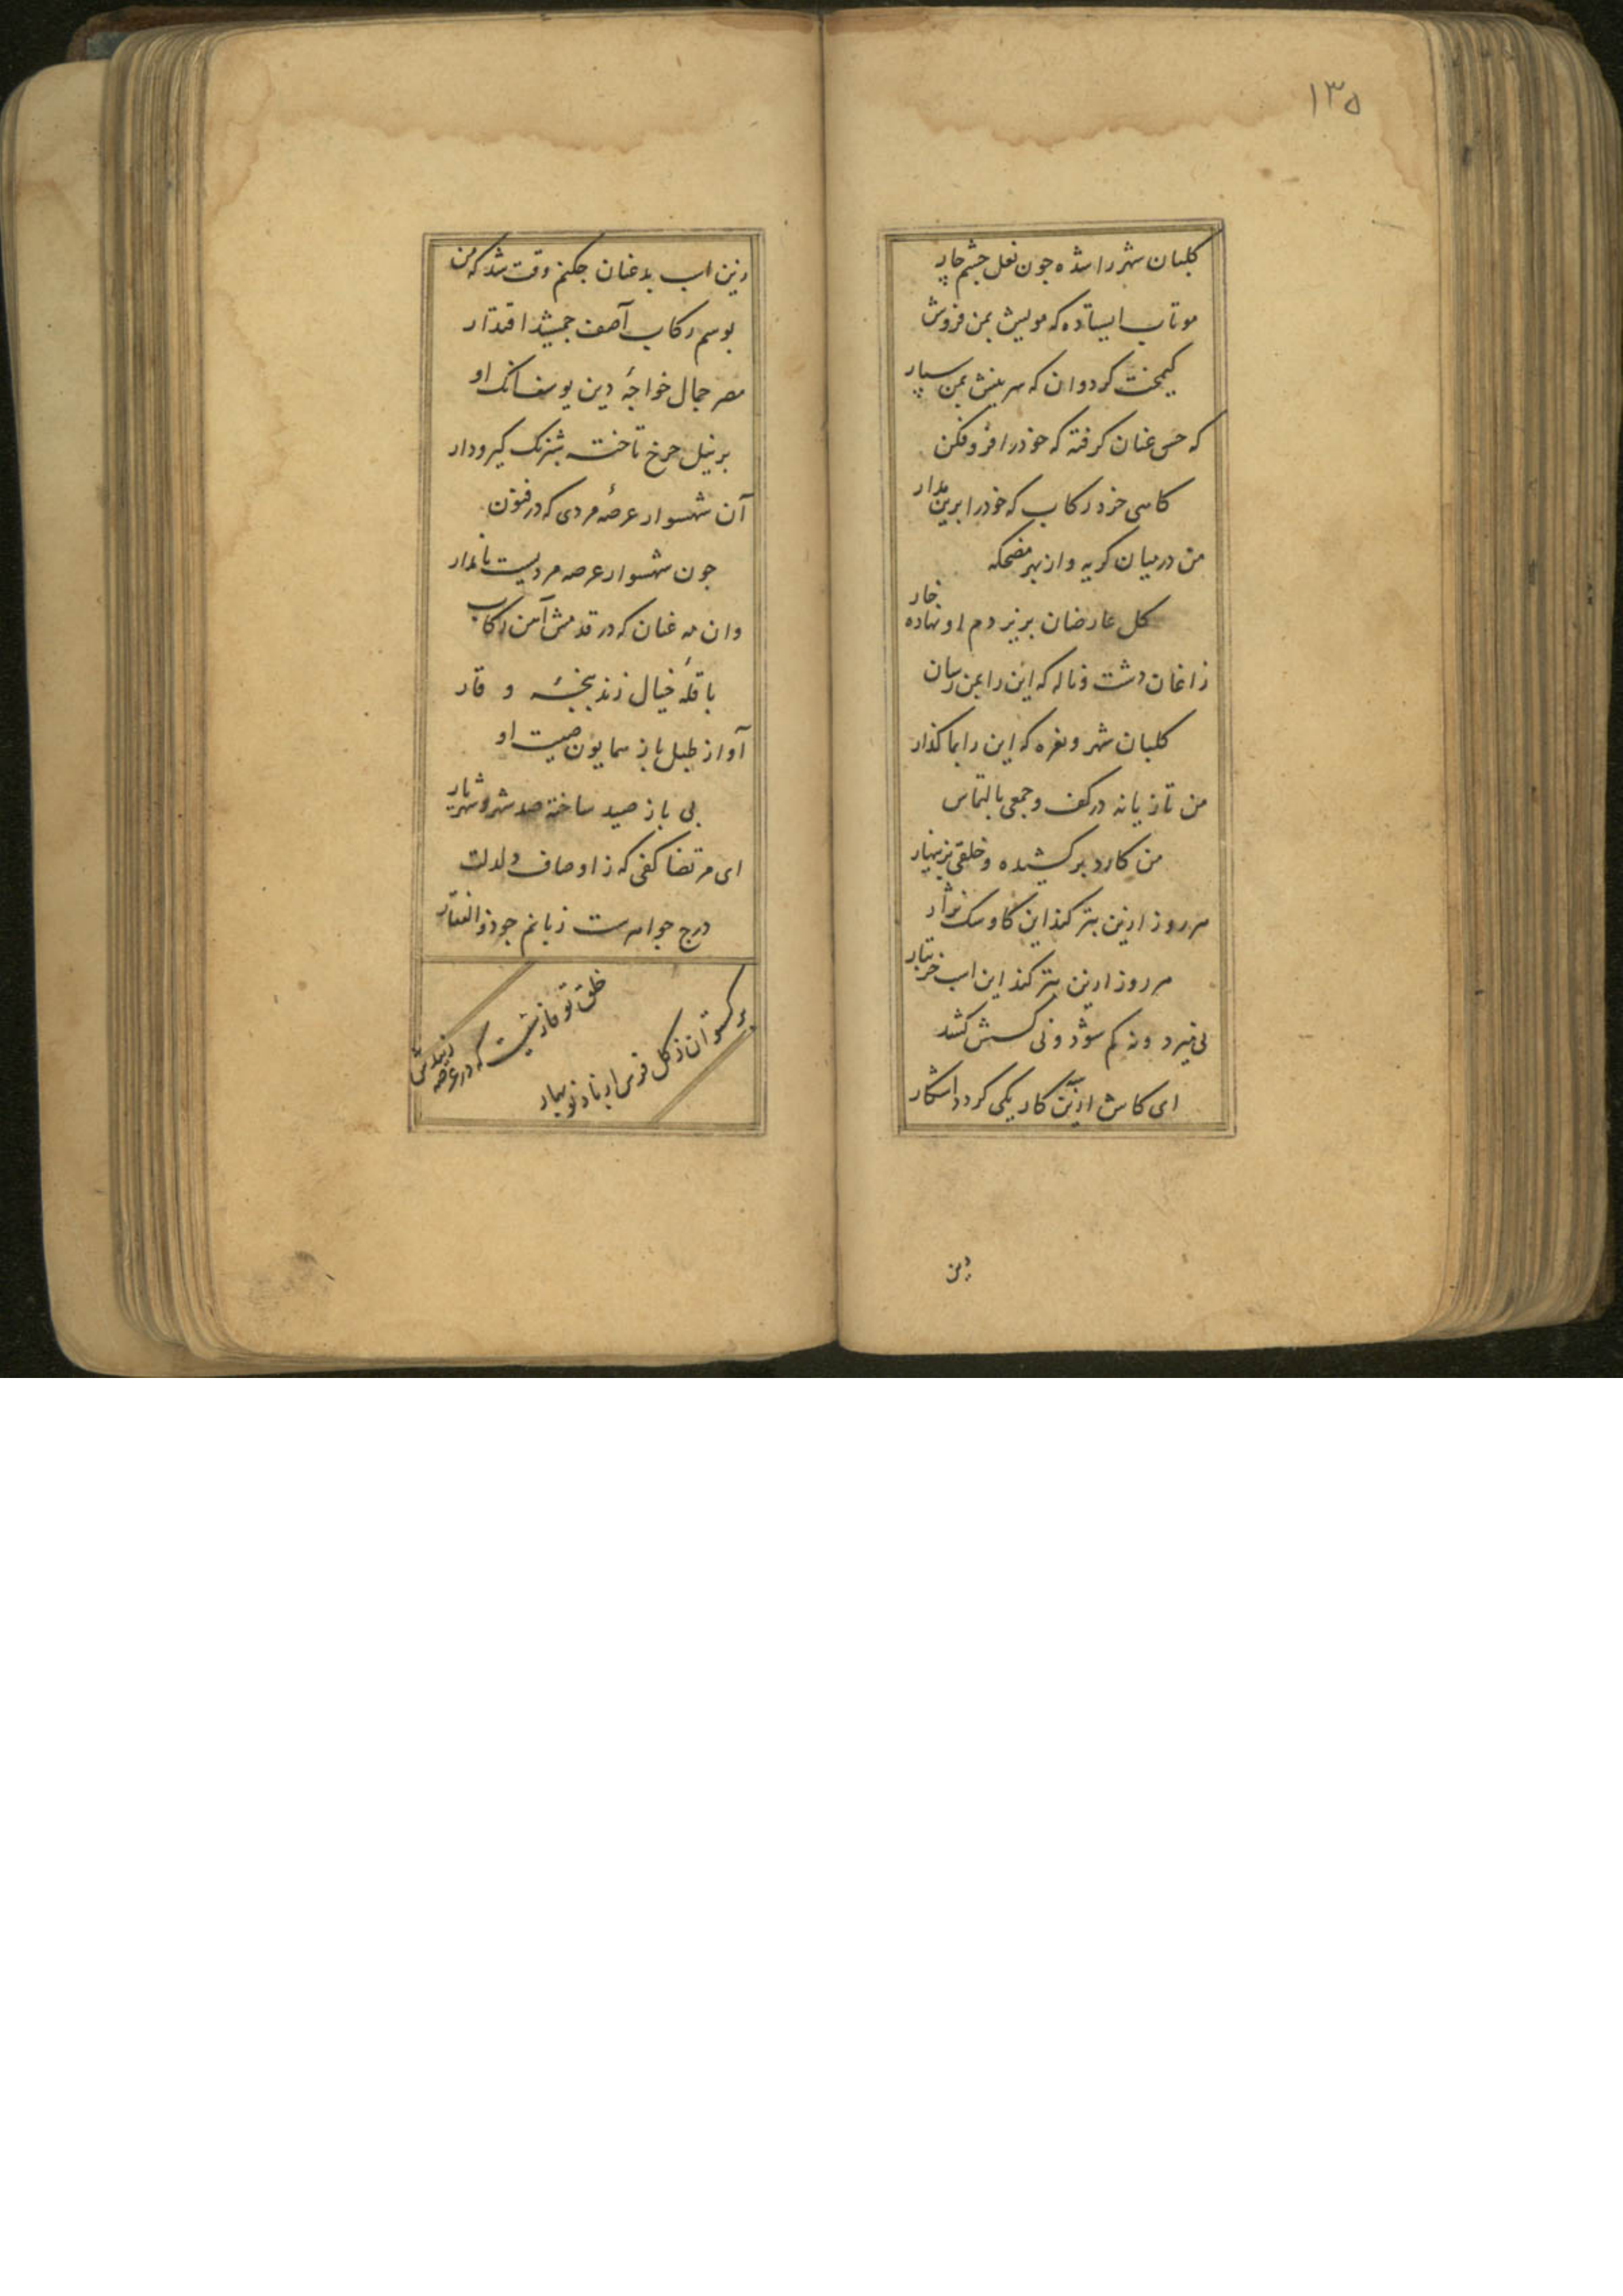 ۱۳۵
کلبان شهر را شده جون نعل جشم جار
موتاب ایستاده که مویش بمن فروش
کیمخت کر دوان که سرینش بمن سپار
که حس عنان کرفته که خود را فرو فکن
کاهی خرد رکاب که خود را برین مدار
من در میان کریه و از بهر مضحکه
کل عارضان بزیر دم او نهاده خار
زاغان دشت و ناله که این را بمن رسان
کلبان شهر و نعره که این را بما کذار
من تازیانه در کف و جمعی بالتماس
من کارد بر کشیده و خلقی بزینهار
هر روز ازین بتر کند این کاو سک نژاد
هر روز ازین بتر کند این اسب خر تبار
نی میرد و نه کم شود و نی کسش کشد
ای کاش ازین کار یکی کردد اشکار
زین
زین اسب بد عنان جکنم وقت شد که من
بوسم رکاب آصف جمشید اقتدار
مصر جمال خواجهٔ دین یوسف انک او
بر نیل جرخ تاخته شبرنک کیرودار
آن شهسوار عرصهٔ مردی که در فنون
جون شهسوار عرصه مردیست نامدار
وان مه عنان که در قدمش آهن رکاب
با قلهٔ خیال زند بخیهٔ و قار
آواز طبل باز همایون صیت او
بی باز صید ساخته صد شهر و شهریار
ای مرتضا کفی که ز اوصاف دلدلت
درج جواهرست زبانم جو ذوالفقار
خلق تو فارسیست که در عرصه زیبدش
بر کستوان ز کل فرس از باد نوبهار